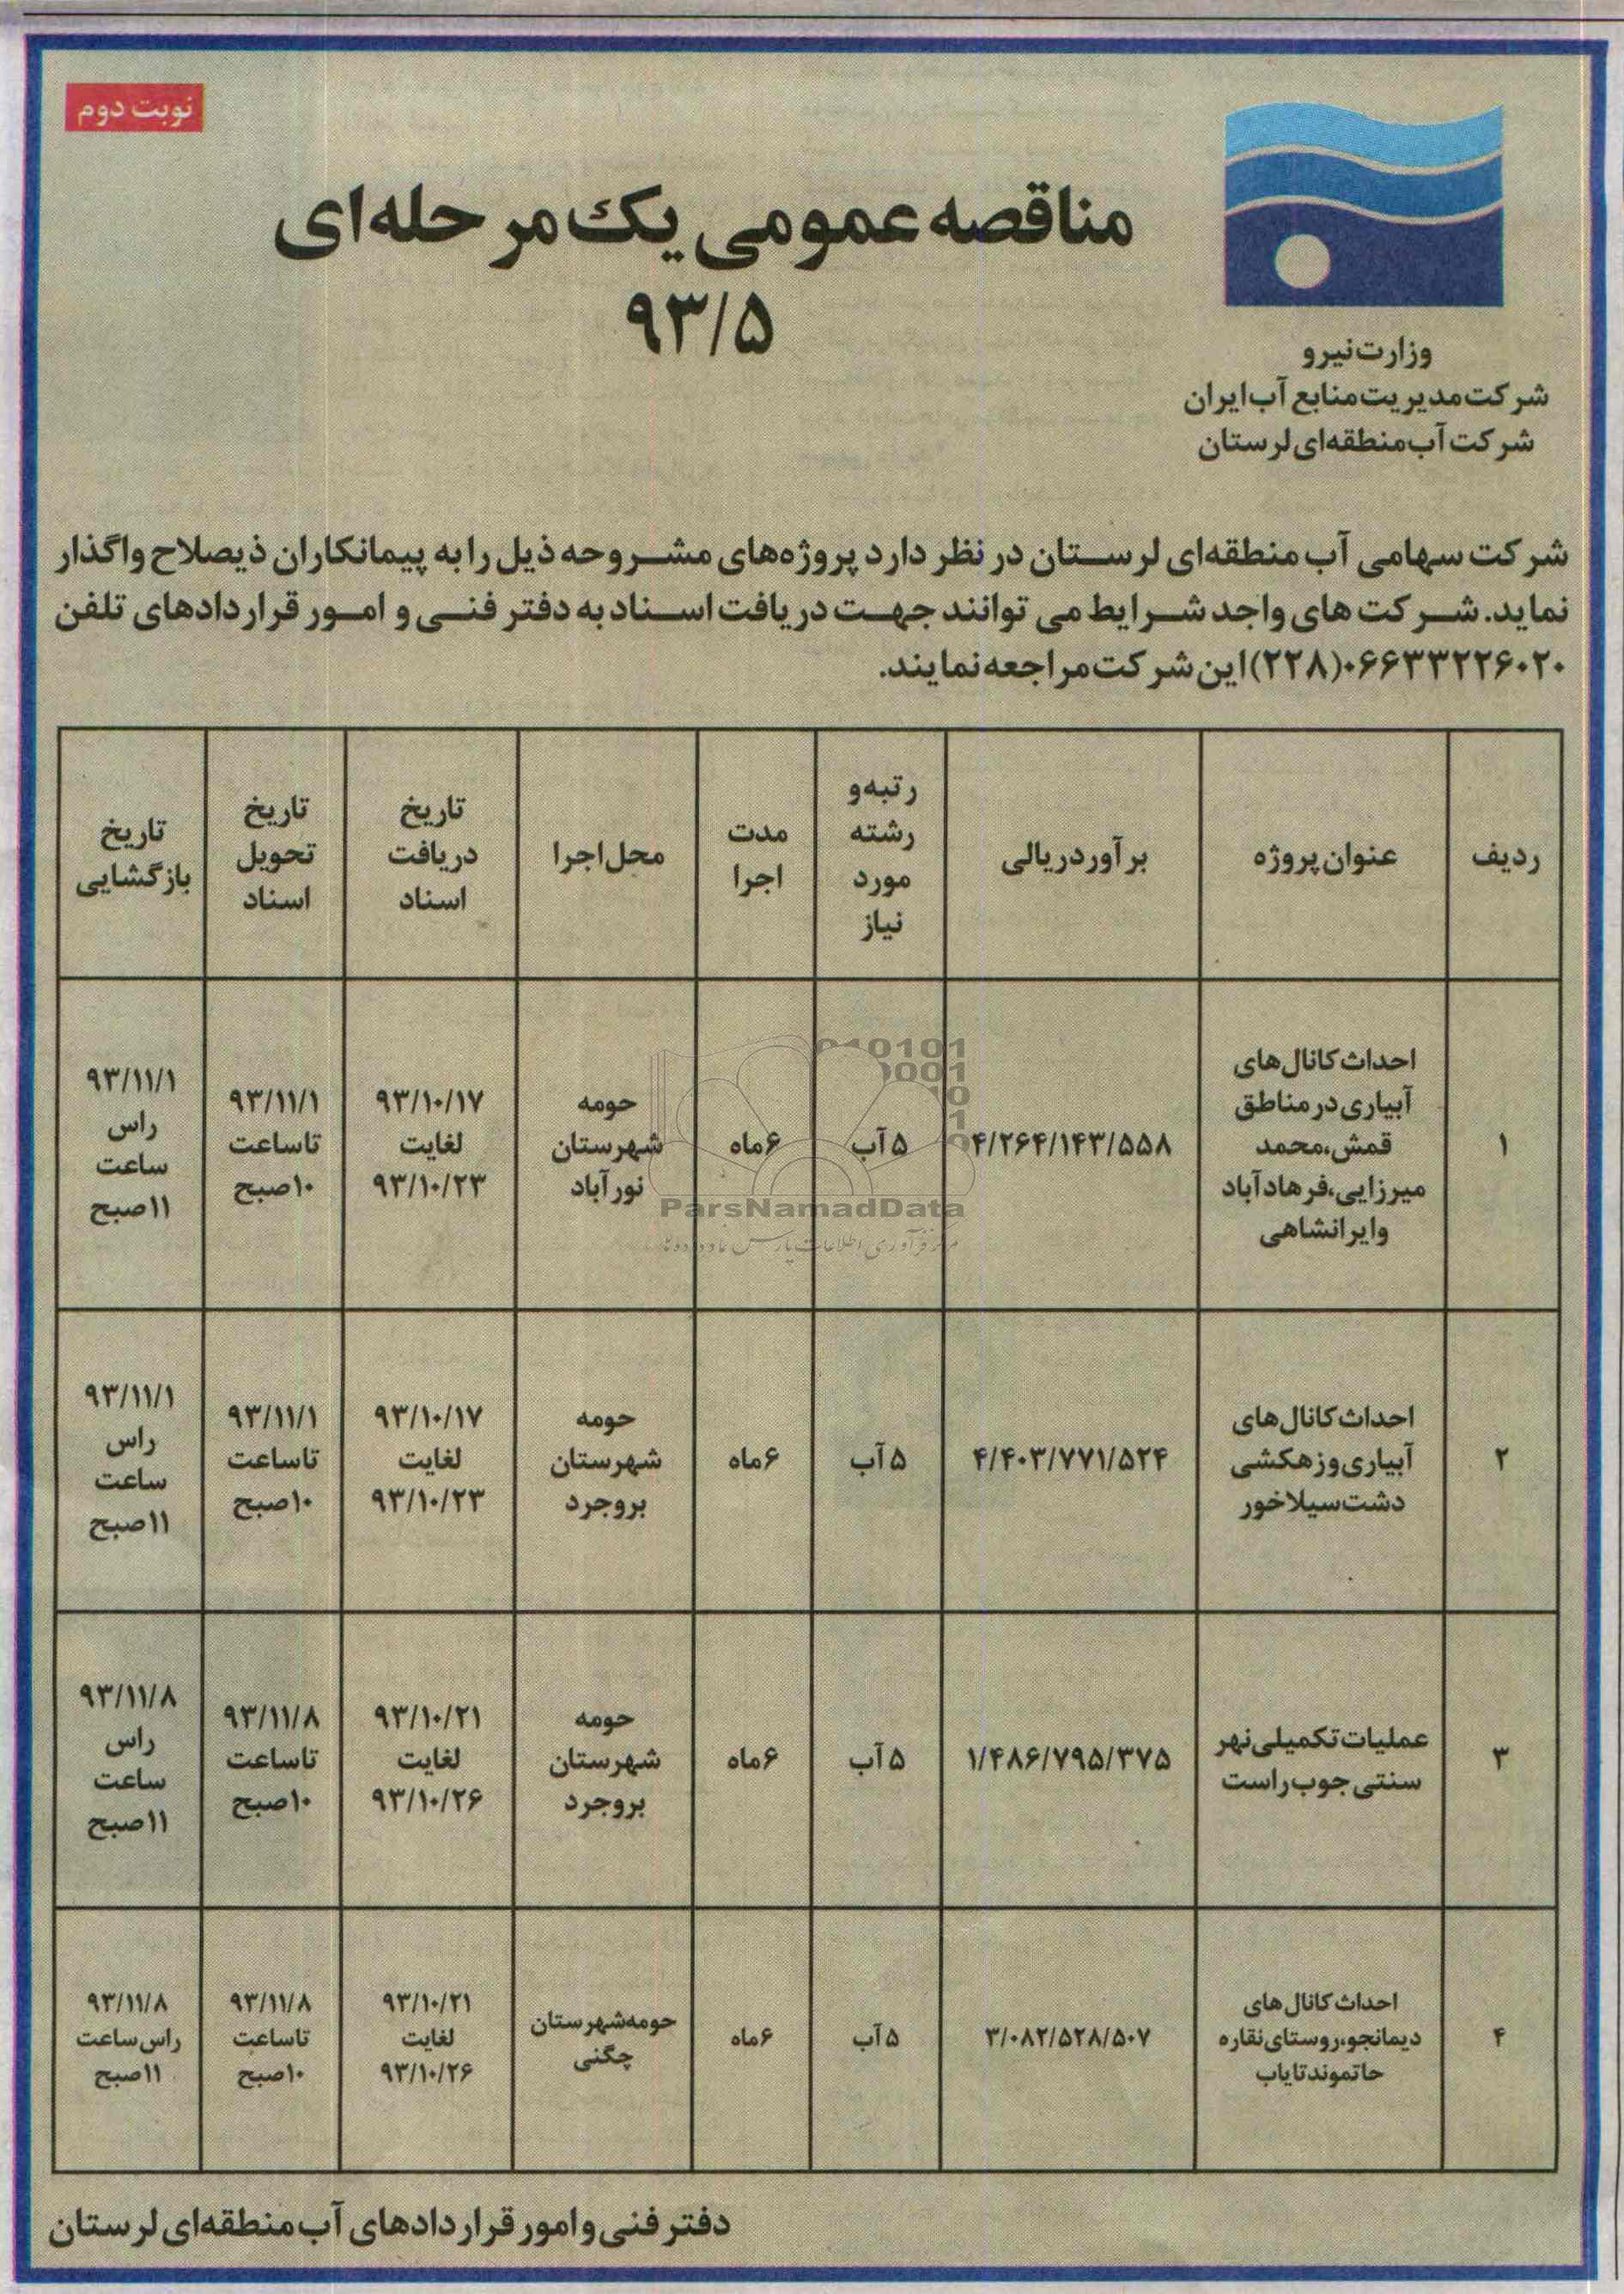 نوبت دوم
مناقصه عمومی یک مرحله‌ای
۹۳/۵
وزارت نیرو
شرکت مدیریت منابع آب ایران
شرکت آب منطقه‌ای لرستان
شرکت سهامی آب منطقه‌ای لرستان در نظر دارد پروژه‌های مشروحه ذیل را به پیمانکاران ذیصلاح واگذار
نماید. شرکت های واجد شرایط می توانند جهت دریافت اسناد به دفتر فنی و امور قراردادهای تلفن
۰۶۶۳۳۲۲۶۰۲۰(۲۲۸) این شرکت مراجعه نمایند.
ردیف
عنوان پروژه
برآورد ریالی
رتبه و
رشته
مورد
نیاز
مدت
اجرا
محل اجرا
تاریخ
دریافت
اسناد
تاریخ
تحویل
اسناد
تاریخ
بازگشایی
۱
احداث کانال های
آبیاری در مناطق
قمش، محمد
میرزایی، فرهادآباد
و ایرانشاهی
۴/۲۶۴/۱۴۳/۵۵۸
۵ آب
۶ ماه
حومه
شهرستان
نورآباد
۹۳/۱۰/۱۷
لغایت
۹۳/۱۰/۲۳
۹۳/۱۱/۱
تا ساعت
۱۰ صبح
۹۳/۱۱/۱
راس
ساعت
۱۱ صبح
۲
احداث کانال های
آبیاری و زهکشی
دشت سیلاخور
۴/۴۰۳/۷۷۱/۵۲۴
۵ آب
۶ ماه
حومه
شهرستان
بروجرد
۹۳/۱۰/۱۷
لغایت
۹۳/۱۰/۲۳
۹۳/۱۱/۱
تا ساعت
۱۰ صبح
۹۳/۱۱/۱
راس
ساعت
۱۱ صبح
۳
عملیات تکمیلی نهر
سنتی جوب راست
۱/۴۸۶/۷۹۵/۳۷۵
۵ آب
۶ ماه
حومه
شهرستان
بروجرد
۹۳/۱۰/۲۱
لغایت
۹۳/۱۰/۲۶
۹۳/۱۱/۸
تا ساعت
۱۰ صبح
۹۳/۱۱/۸
راس
ساعت
۱۱ صبح
۴
احداث کانال های
دیمانجو، روستای نقاره
حاتموند تایاب
۳/۰۸۲/۵۲۸/۵۰۷
۵ آب
۶ ماه
حومه شهرستان
چگنی
۹۳/۱۰/۲۱
لغایت
۹۳/۱۰/۲۶
۹۳/۱۱/۸
تا ساعت
۱۰ صبح
۹۳/۱۱/۸
راس ساعت
۱۱ صبح
ParsNamadData
دفتر فنی و امور قراردادهای آب منطقه‌ای لرستان